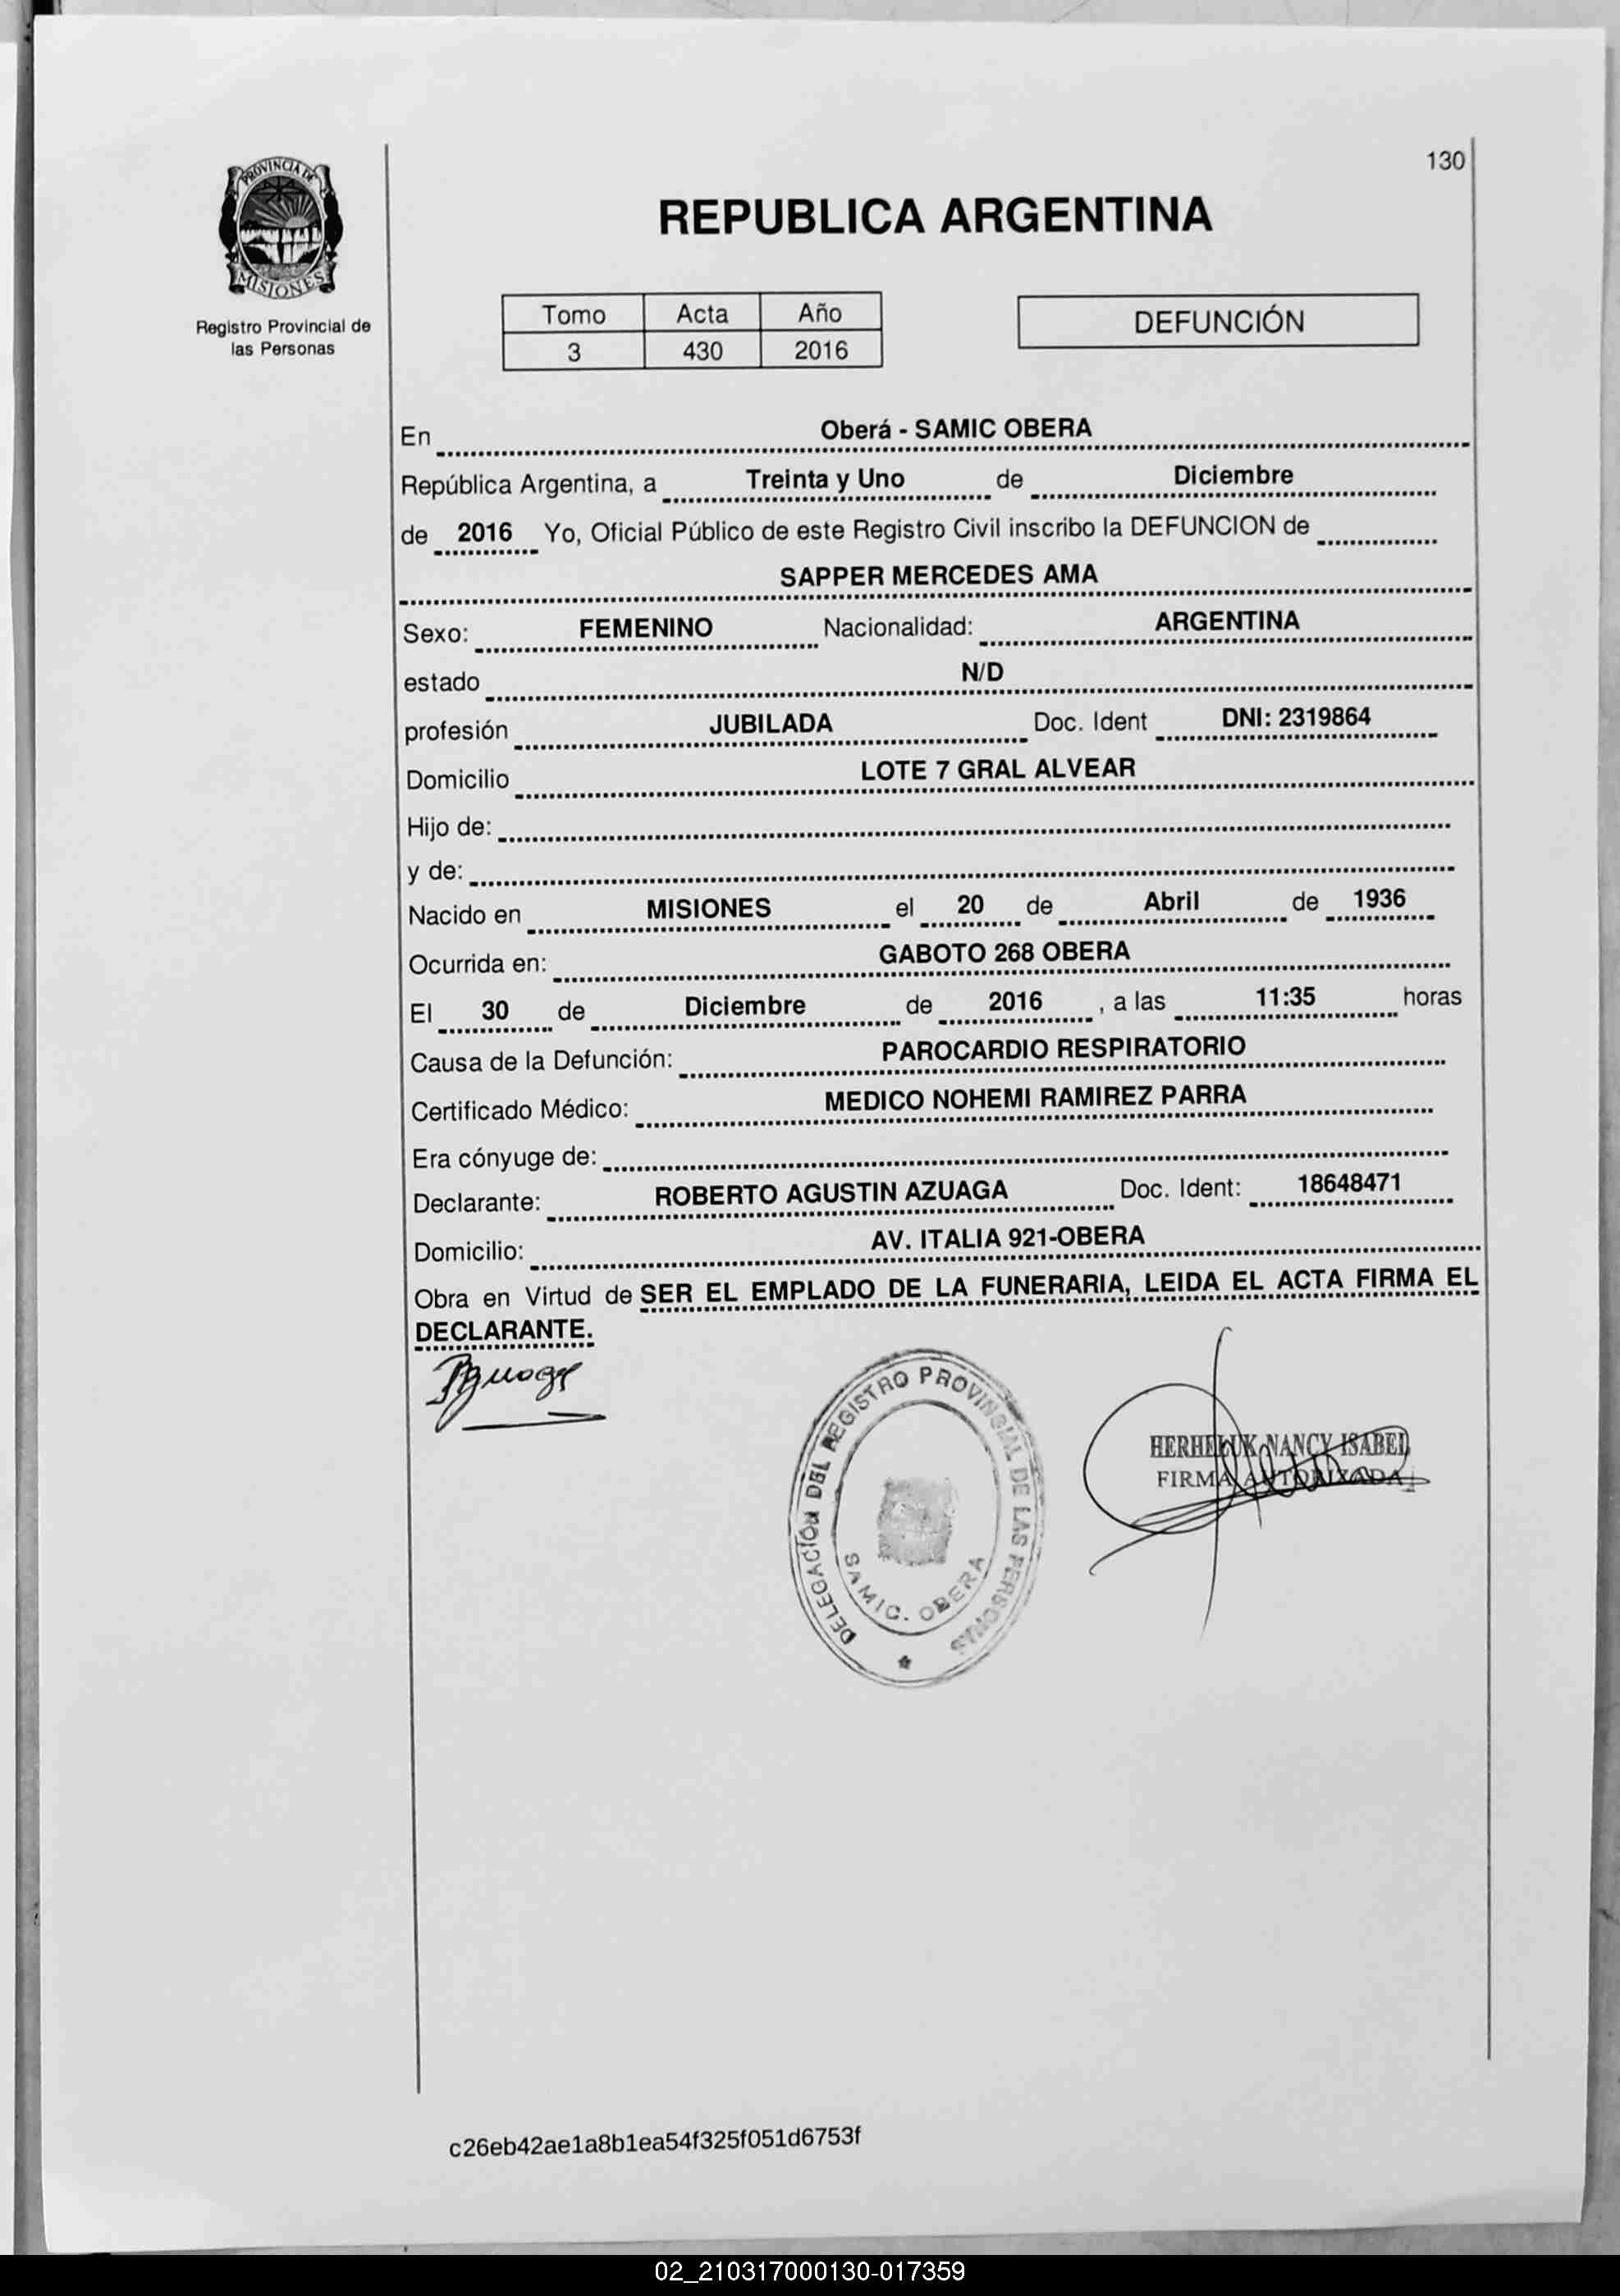 130
PROVINCIA DE
MISIONES
Registro Provincial de
las Personas
REPUBLICA ARGENTINA
Tomo Acta Año
3 430 2016
DEFUNCIÓN
En Oberá - SAMIC OBERA
República Argentina, a Treinta y Uno de Diciembre
de 2016 Yo, Oficial Público de este Registro Civil inscribo la DEFUNCION de
SAPPER MERCEDES AMA
Sexo: FEMENINO Nacionalidad: ARGENTINA
estado N/D
profesión JUBILADA Doc. Ident DNI: 2319864
Domicilio LOTE 7 GRAL ALVEAR
Hijo de:
y de:
Nacido en MISIONES el 20 de Abril de 1936
Ocurrida en: GABOTO 268 OBERA
El 30 de Diciembre de 2016 , a las 11:35 horas
Causa de la Defunción: PAROCARDIO RESPIRATORIO
Certificado Médico: MEDICO NOHEMI RAMIREZ PARRA
Era cónyuge de:
Declarante: ROBERTO AGUSTIN AZUAGA Doc. Ident: 18648471
Domicilio: AV. ITALIA 921-OBERA
Obra en Virtud de SER EL EMPLADO DE LA FUNERARIA, LEIDA EL ACTA FIRMA EL
DECLARANTE.
DELEGACIÓN DEL REGISTRO PROVINCIAL DE LAS PERSONAS
SAMIC. OBERA
HERHELUK NANCY ISABEL
FIRMA AUTORIZADA
c26eb42ae1a8b1ea54f325f051d6753f
02_210317000130-017359